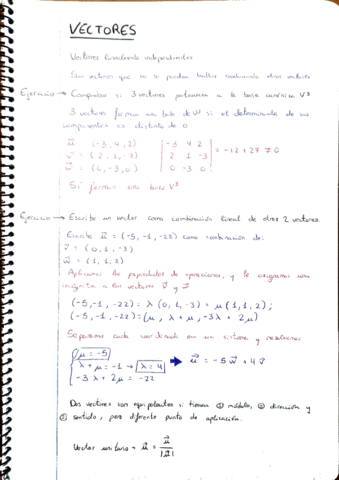 VECTORES
Vectores linealmente independientes
Son vectores que no se pueden hallar combinando otros vectores
Ejercicio → Comprobar si 3 vectores pertenecen a la base canónica V³
3 vectores forman una base de V³ si el determinante de sus
componentes es distinto de 0
u⃗ = (-3, 4, 2) | -3 4 2 |
v⃗ = (2, 1, -3) | 2 1 -3 | = -12 + 27 ≠ 0
w⃗ = (0, -3, 0) | 0 -3 0 |
Sí forman una base V³
Ejercicio → Escribe un vector como combinación lineal de otros 2 vectores.
Escribe u⃗ = (-5, -1, -22) como combinación de:
v⃗ = (0, 1, -3)
w⃗ = (1, 1, 2)
Aplicamos las propiedades de operaciones, y le asignamos una
incógnita a los vectores v⃗ y
(-5, -1, -22) = λ (0, 1, -3) = μ (1, 1, 2);
(-5, -1, -22) = (μ, λ + μ, -3λ + 2μ)
Separamos cada coordenada en un sistema y resolvemos
μ = -5
λ + μ = -1 → λ = 4 → u⃗ = -5w⃗ + 4v⃗
-3λ + 2μ = -22
Dos vectores son equipolentes si tienen ① módulo, ② dirección y
③ sentido, pero diferente punto de aplicación.
Vector unitario = u⃗ = u⃗ / |u⃗|